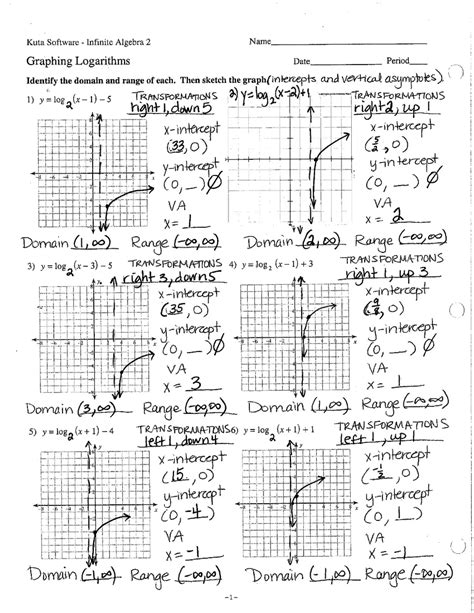 Kuta Software - Infinite Algebra 2 Name
Graphing Logarithms Date Period
Identify the domain and range of each. Then sketch the graph. (intercepts and vertical asymptotes).
1) y = log₂(x − 1) − 5 TRANSFORMATIONS 2) y = log₂(x−2)+1 TRANSFORMATIONS
right 1, down 5 right 2, up 1
x-intercept x-intercept
(33, 0) (5/2, 0)
y-intercept y-intercept
(0, __) Ø (0, __) Ø
VA VA
x = 1 x = 2
Domain (1, ∞) Range (-∞, ∞) Domain (2, ∞) Range (-∞, ∞)
3) y = log₂(x − 3) − 5 TRANSFORMATIONS 4) y = log₂ (x − 1) + 3 TRANSFORMATIONS
right 3, down 5 right 1, up 3
x-intercept x-intercept
(35, 0) (9/8, 0)
y-intercept y-intercept
(0, __) Ø (0, __) Ø
VA VA
x = 3 x = 1
Domain (3, ∞) Range (-∞, ∞) Domain (1, ∞) Range (-∞, ∞)
5) y = log₂(x + 1) − 4 TRANSFORMATIONS 6) y = log₂(x + 1) + 1 TRANSFORMATIONS
left 1, down 4 left 1, up 1
x-intercept x-intercept
(15, 0) (-1/2, 0)
y-intercept y-intercept
(0, -4) (0, 1)
VA VA
x = -1 x = -1
Domain (-1, ∞) Range (-∞, ∞) Domain (-1, ∞) Range (-∞, ∞)
-1-